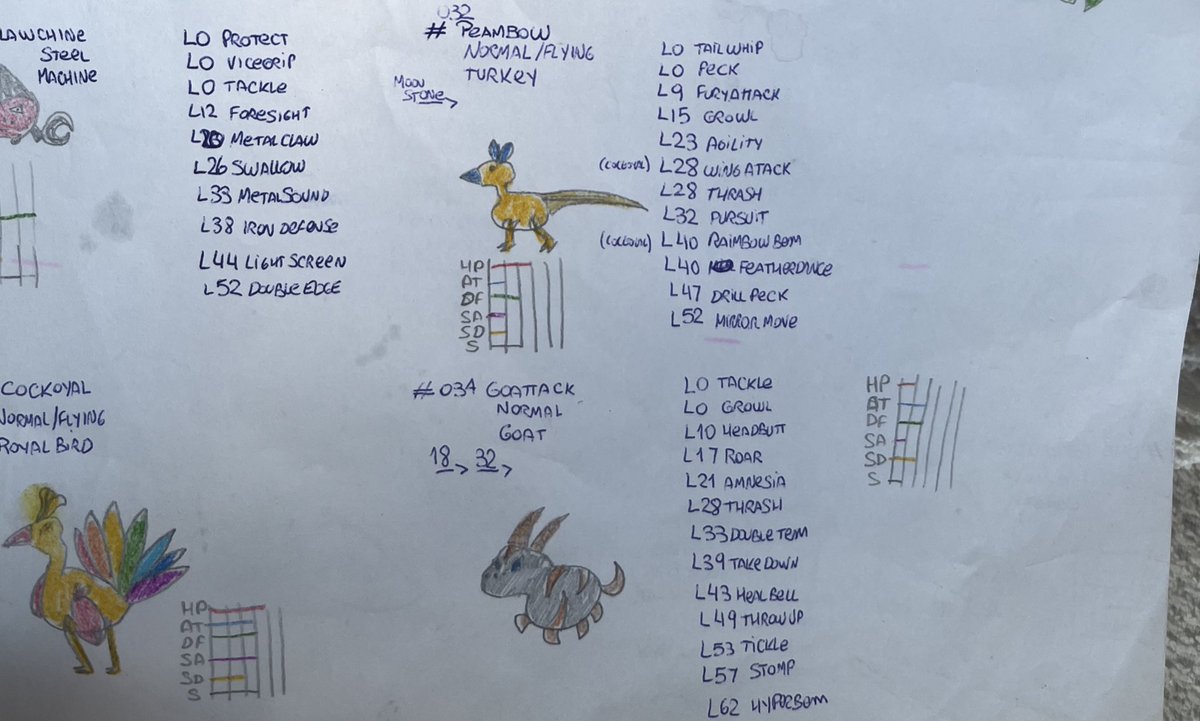 LAWCHINE
STEEL
MACHINE
L0 PROTECT
L0 VICEGRIP
L0 TACKLE
L12 FORESIGHT
METAL CLAW
L26 SWALLOW
L33 METALSOUND
L38 IRON DEFENSE
L44 LIGHT SCREEN
L52 DOUBLE EDGE
032
# PEAMBOW
NORMAL/FLYING
TURKEY
MOON
STONE
HP
AT
DF
SA
SD
S
L0 TAILWHIP
L0 PECK
L9 FURYATTACK
L15 GROWL
L23 AGILITY
(COCKOYAL) L28 WING ATACK
L28 THRASH
L32 PURSUIT
(COCKOYAL) L40 RAIMBOW BEAM
L40 FEATHERDANCE
L47 DRILL PECK
L52 MIRROR MOVE
COCKOYAL
NORMAL/FLYING
ROYAL BIRD
HP
AT
DF
SA
SD
S
#034 GOATTACK
NORMAL
GOAT
18 32
L0 TACKLE
L0 GROWL
L10 HEADBUTT
L17 ROAR
L21 AMNESIA
L28 THRASH
L33 DOUBLE TEAM
L39 TAKE DOWN
L43 HEAL BELL
L49 THROW UP
L53 TICKLE
L57 STOMP
L62 HYPERBEAM
HP
AT
DF
SA
SD
S